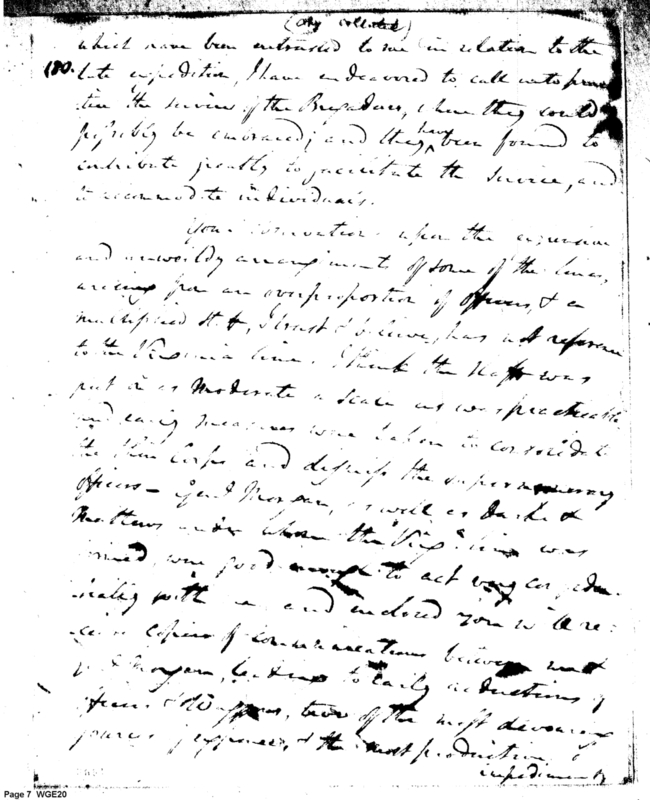 (
which have been entrusted to me in relation to the
180. late expedition, I have endeavored to call into
the service of the Brigadiers, where they could
possibly be embraced; and they have been found to
contribute greatly to facilitate the service, and
to accommodate individuals.
Your observations upon the expensive
and unwieldy arrangements of some of the lines,
arising from an overproportion of officers, & a
multiplied staff, I trust & believe, has not reference
to the Virginia line. I think the staff was
put on as moderate a scale as was practicable
and early measures were taken to consolidate
the thin Corps and dismiss the supernumerary
officers – Genl Morgan, as well as Darke &
Mathews under whom the Virga line was
formed, were good enough to act very
with me and enclosed you will re-
ceive copies of communications between me &
Genl Morgan, leading to early reductions of
officers & Waggons, two of the most devouring
sources of expences, & the most productive of
impediments
Page 7 WGE20